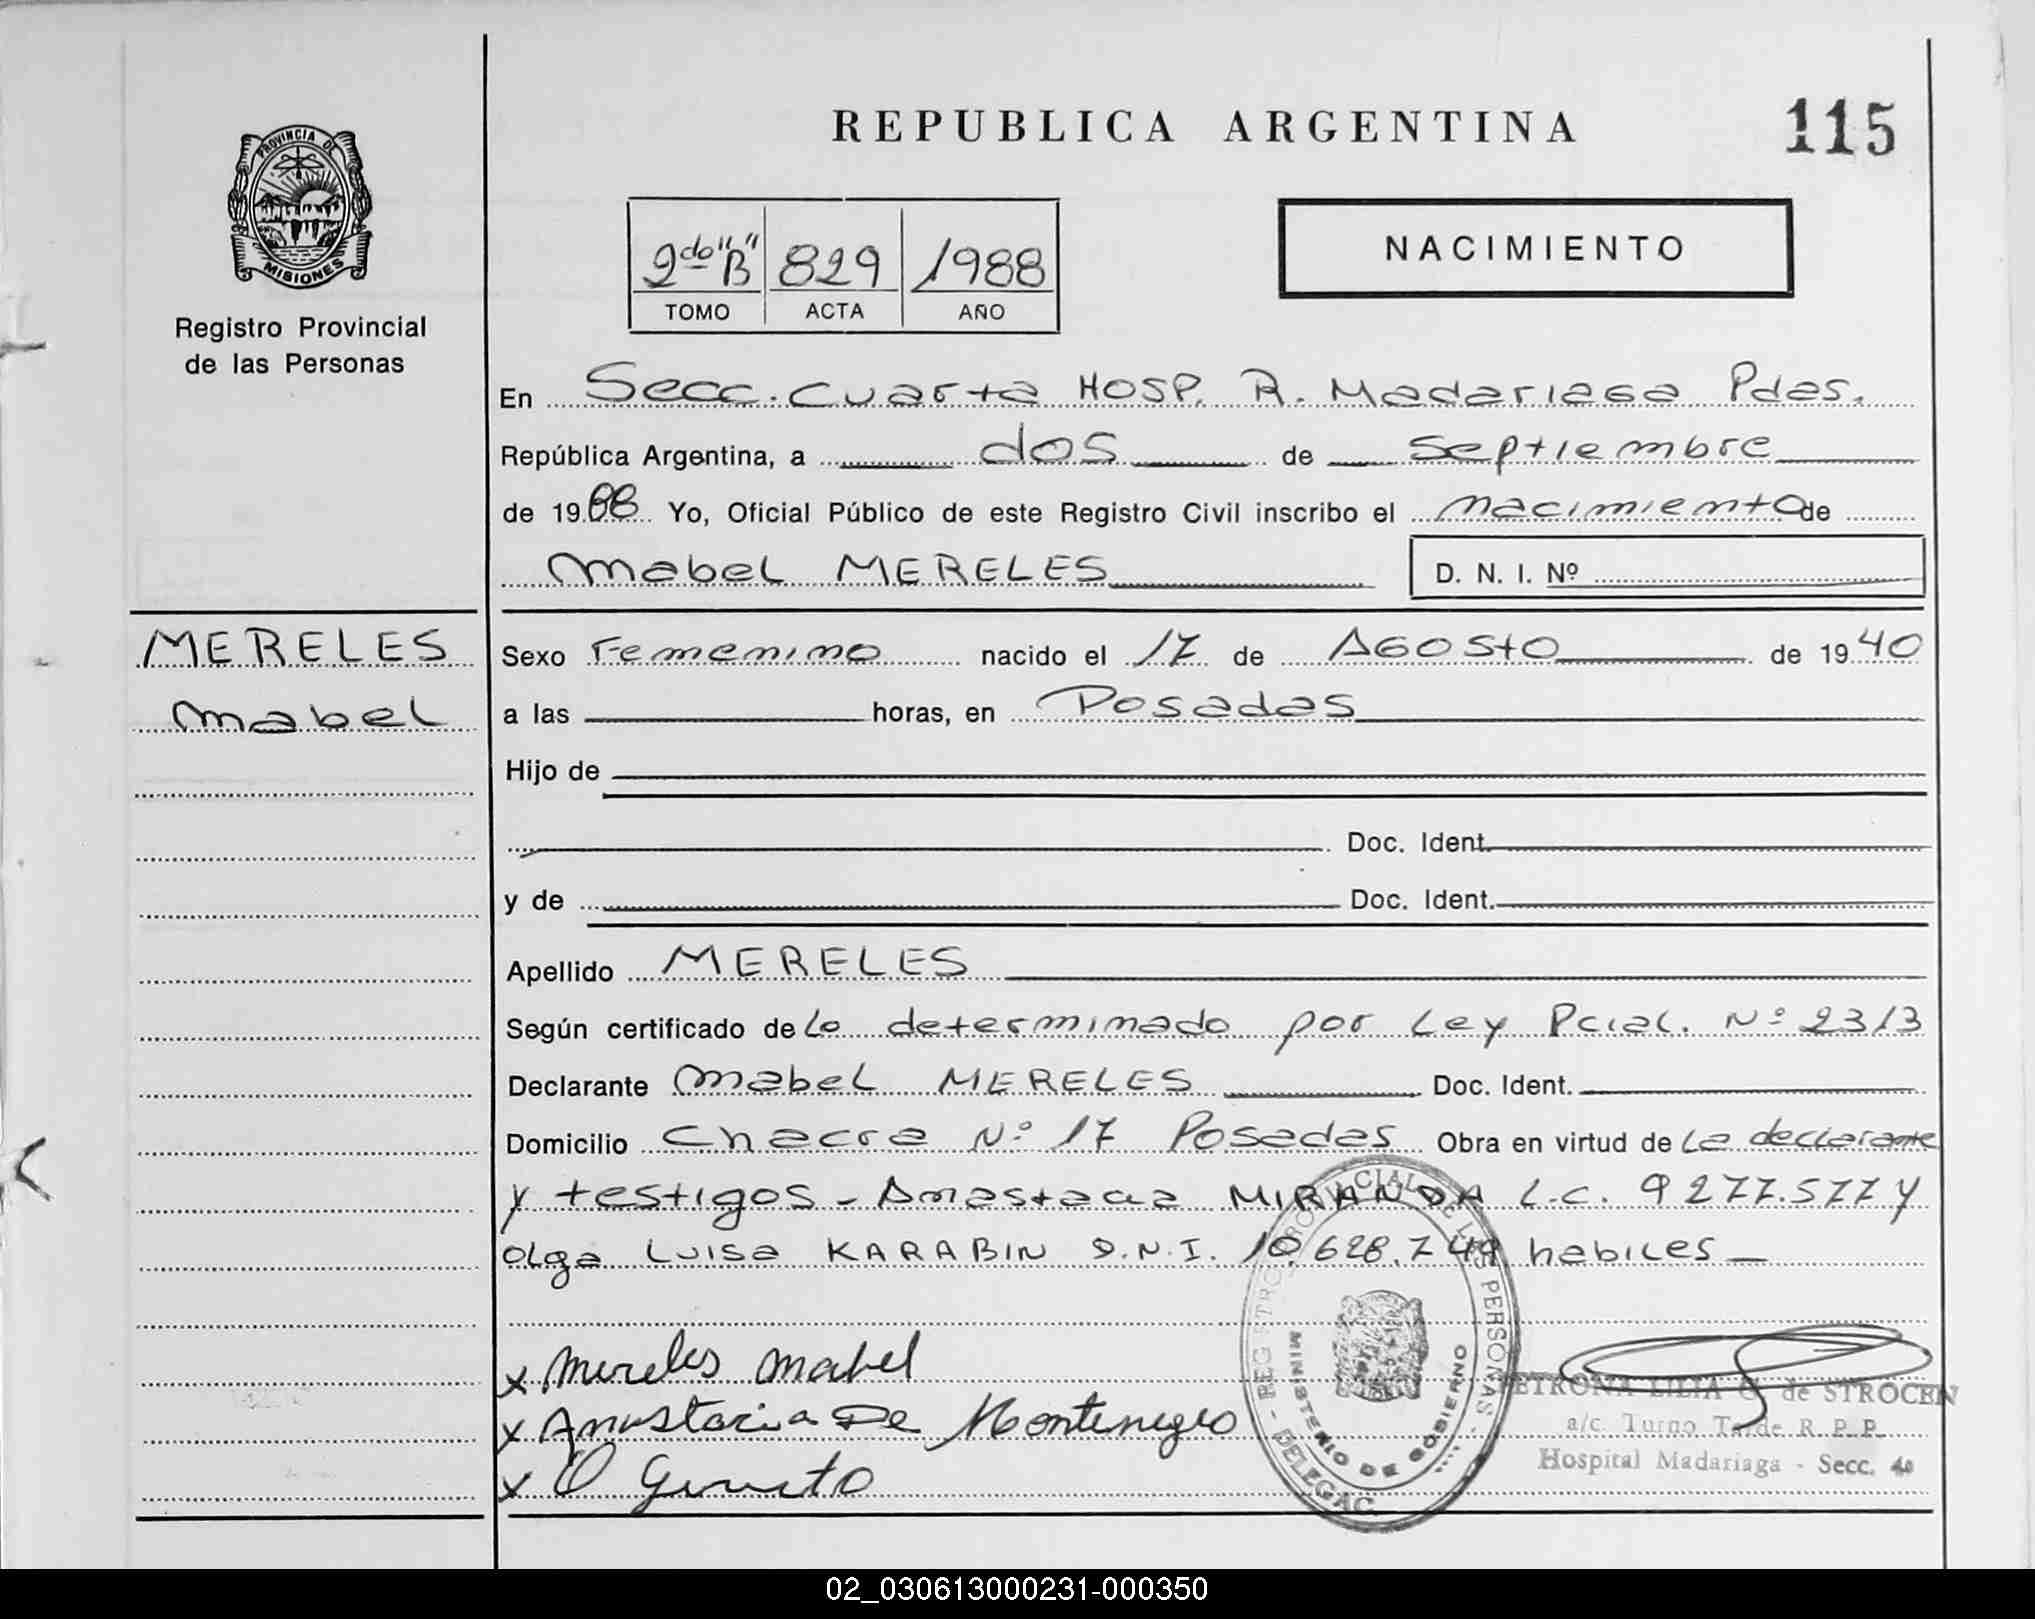 REPUBLICA ARGENTINA
115
PROVINCIA DE
MISIONES
Registro Provincial
de las Personas
2do "B" 829 1988
TOMO ACTA AÑO
NACIMIENTO
En Secc. Cuarta HOSP. R. Madariaga Pdas.
República Argentina, a dos de septiembre
de 1988 Yo, Oficial Público de este Registro Civil inscribo el nacimiento de
Mabel MERELES D. N. I. Nº
MERELES
Mabel
Sexo Femenino nacido el 17 de AGOSTO de 1940
a las horas, en Posadas
Hijo de
Doc. Ident.
y de Doc. Ident.
Apellido MERELES
Según certificado de Lo determinado por Ley Pcial. Nº 2313
Declarante Mabel MERELES Doc. Ident.
Domicilio Chacra Nº 17 Posadas Obra en virtud de La declarante
y testigos - Anastacia MIRANDA L.C. 9277.577 y
Olga Luisa KARABIN D.N.I. 10.628.749 habiles
x Mereles Mabel
x Anastacia De Montenegro
x O
REGISTRO PROVINCIAL DE LAS PERSONAS - DELEGAC.
MINISTERIO DE GOBIERNO
PETRONA LILIA G. de STROCEN
a/c. Turno Tarde R. P. P.
Hospital Madariaga - Secc. 4a
02_030613000231-000350